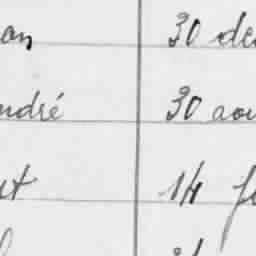 an 30 de
ndré 30 aou
et 14 f